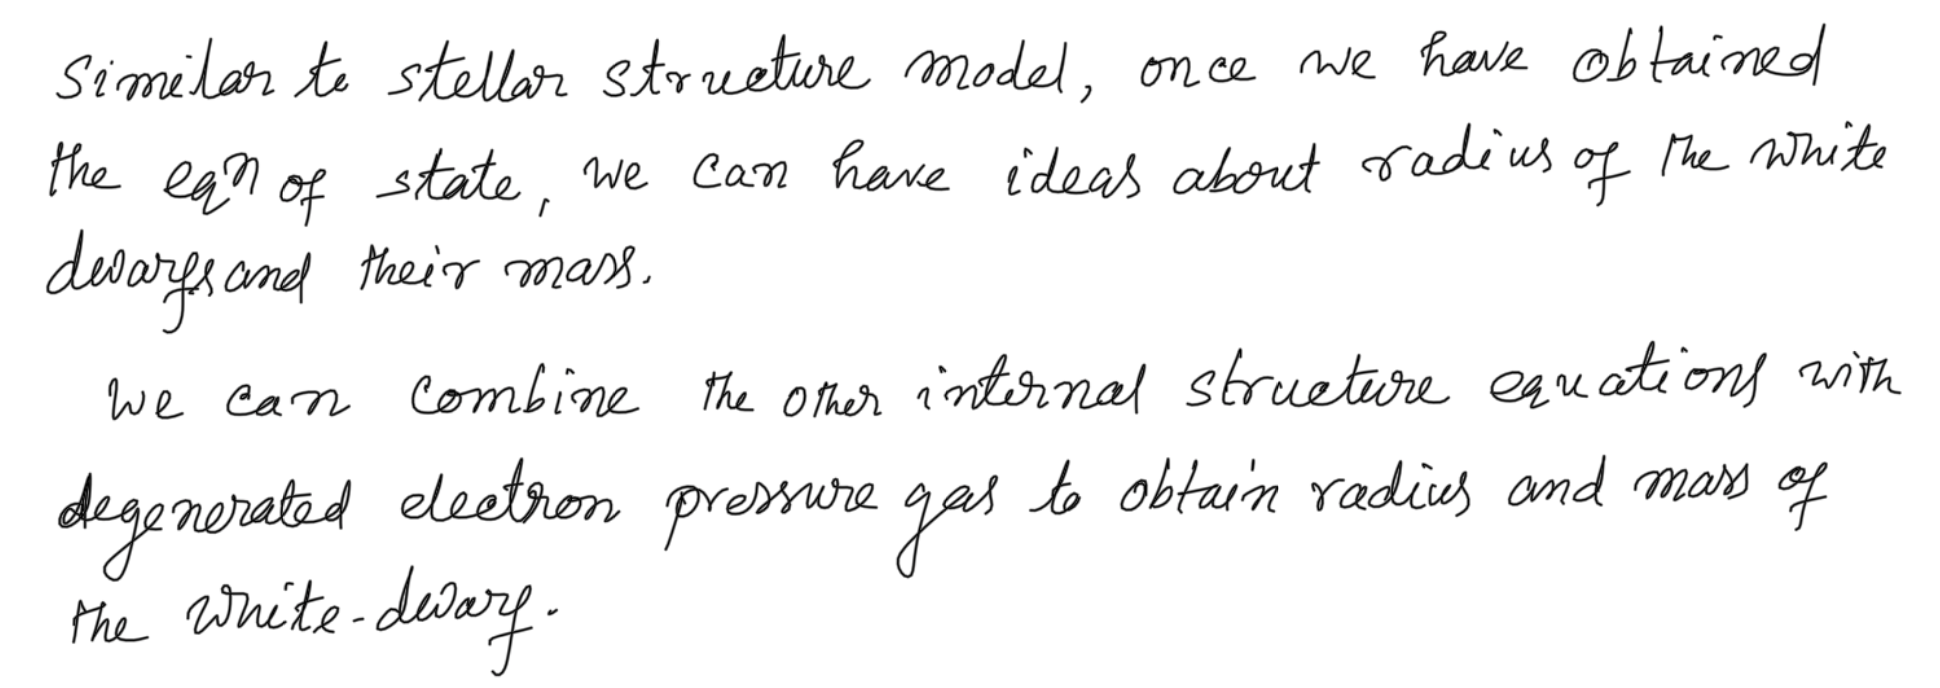 Similar to stellar structure model, once we have obtained
the eqn of state, we can have ideas about radius of the white
dwarfs and their mass.
We can combine the other internal structure equations with
degenerated electron pressure gas to obtain radius and mass of
the white-dwarf.